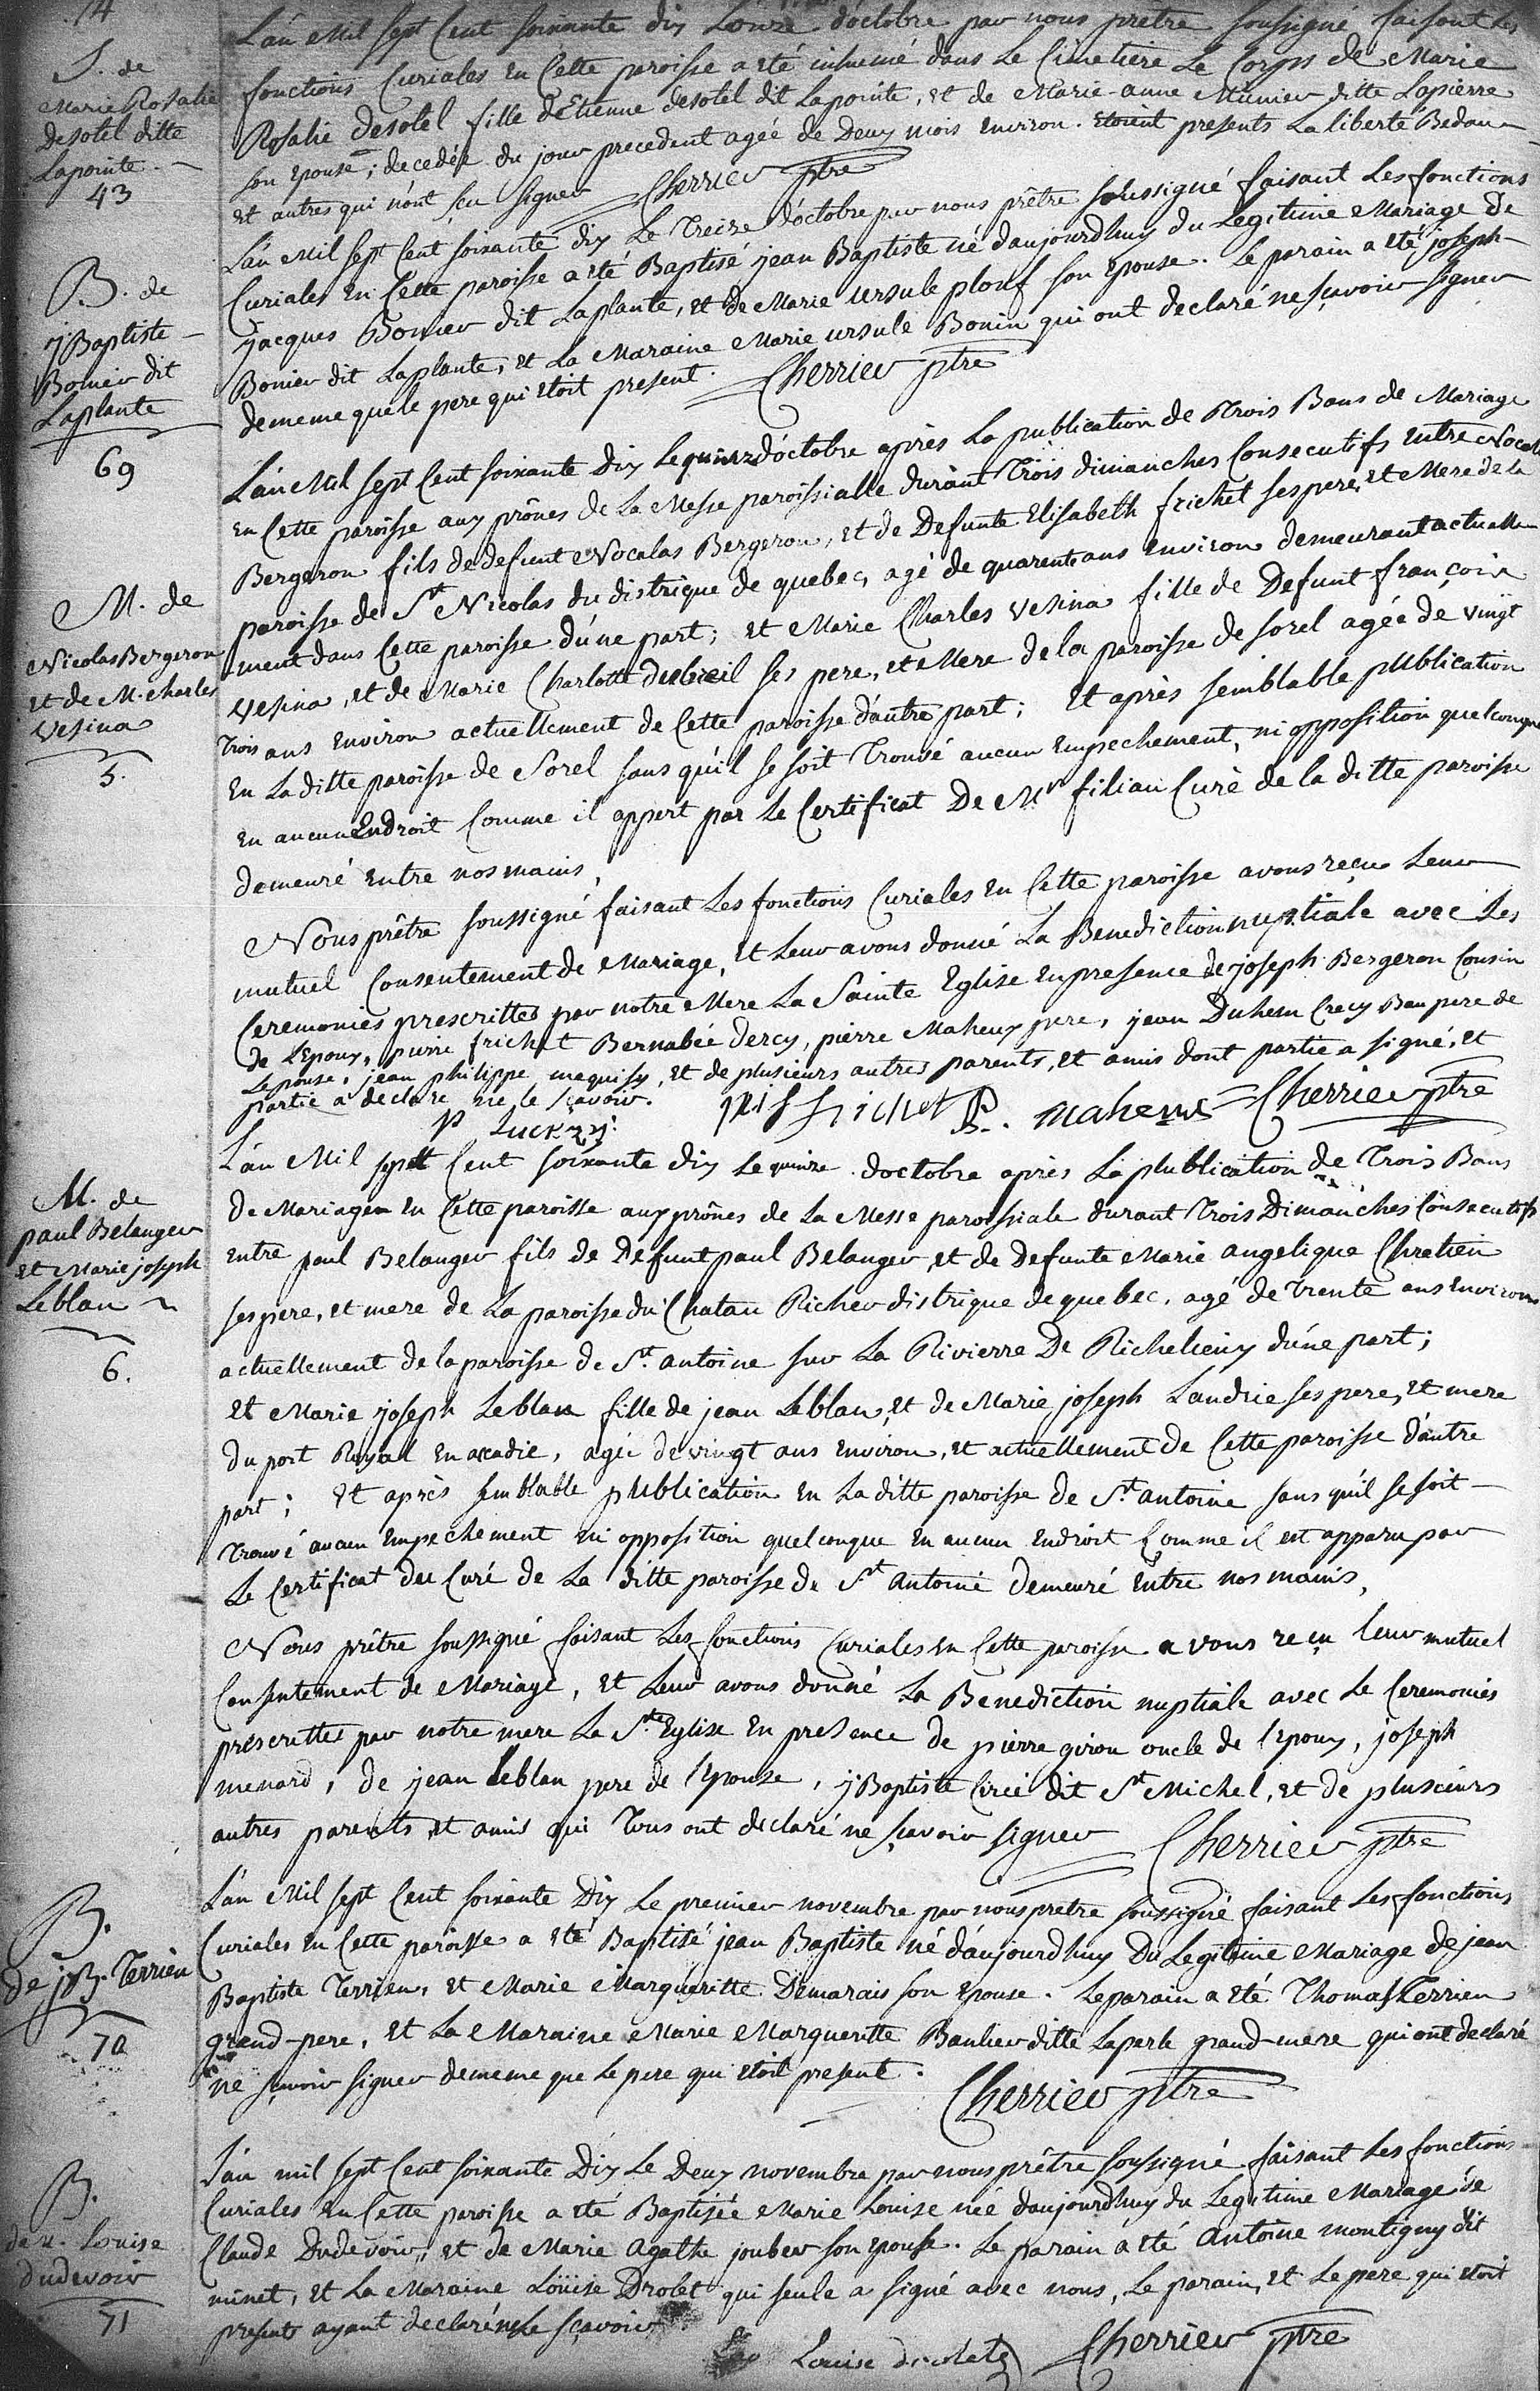 14
S. de
Marie Rosalie
desotel ditte
Lapointe
43
L'an Mil sept Cent soixante dix L'onze d'octobre par nous prêtre soussigné faisant Les
fonctions Curiales en Cette paroisse a été inhumé dans Le Cimetiere Le Corps de Marie
Rosalie desotel fille d'Etienne desotel dit Lapointe, et de Marie-anne Munier ditte Lapierre
son epouse; decedée du jour precedent agée de Deux mois environ. etoient presents La liberté Bedan
et autres qui n'ont sçu signer Cherrier ptre
B. de
j Baptiste
Bonier dit
Laplante
69
L'an Mil sept Cent soixante dix Le Treize d'octobre par nous prêtre soussigné faisant Les fonctions
Curiales en Cette paroisse a été Baptisé jean Baptiste né d'aujourdhuy du Legitime Mariage de
jacques Bonier dit Laplante, et de Marie ursule plouf son epouse. Le parain a eté joseph
Bonier dit Laplante, et La Maraine Marie ursule Bonin qui ont declaré ne sçavoir signer
de meme que le pere qui etoit present. Cherrier ptre
M. de
Nicolas Bergeron
et de M. charles
Vesina
5.
L'an Mil sept Cent soixante dix Le quinze d'octobre après La publication de Trois Bans de Mariage
en Cette paroisse aux prônes de La Messe paroissialle durant Trois dimanches Consecutifs entre Nocalas
Bergeron fils de defunt Nocalas Bergeron, et de Defunte Elisabeth frichet ses pere, et Mere de la
paroisse de St Nicolas du distrique de quebec, agé de quarente ans environ demeurant actuelle
ment dans Cette paroisse d'une part; et Marie Charles Vesina fille de Defunt françois
Vesina, et de Marie Charlotte dubreil ses pere, et Mere de la paroisse de sorel agée de vingt
Trois ans environ actuellement de Cette paroisse d'autre part; Et après semblable publication
en La ditte paroisse de Sorel sans qu'il se soit Trouvé aucun empechement, ni opposition quelconque
en aucun Endroit Comme il appert par Le Certificat De Mr filiau Curé de la ditte paroisse
demeuré entre nos mains,
Nous prêtre soussigné faisant Les fonctions Curiales en Cette paroisse avons reçu Leur
mutuel Consentement de Mariage, et Leur avons donné La Benediction nuptiale avec Les
Ceremonies prescrittes par notre Mere La Sainte Eglise en presence de joseph Bergeron Cousin
de L'epoux, pierre frichet Bernabée dercy, pierre Maheux pere, jean Duhem Crecy Beau pere de
Lepouse, jean philippe mequisy, et de plusieurs autres parents, et amis dont partie a signé, et
partie a declaré ne le sçavoir. frichet P. maheux Cherrier ptre
P
M. de
paul Belanger
et Marie joseph
Leblan
6.
L'an Mil sept Cent soixante dix Le quinze d'octobre après La publication de Trois Bans
de Mariage en Cette paroisse aux prônes de La Messe paroissiale durant Trois Dimanches Consecutifs
entre paul Belanger fils de Defunt paul Belanger, et de Defunte Marie angelique Chretien
ses pere, et mere de La paroisse du Chatau Richer distrique de quebec, agé de Trente ans environ
actuellement de la paroisse de St. antoine sur La Rivierre De Richelieux d'une part;
et Marie joseph Leblan fille de jean Leblan, et de Marie joseph Landrie ses pere, et mere
du port Royal en acadie, agée de vingt ans environ, et actuellement de Cette paroisse d'autre
part; et après semblable publication en La ditte paroisse de St. antoine sans qu'il se soit
Trouvé aucun empechement ni opposition quelconque en aucun endroit Comme il est apparu par
Le Certificat du Curé de La ditte paroisse de St antoine Demeuré entre nos mains,
Nous prêtre soussigné faisant Les fonctions Curiales en Cette paroisse avons reçu leur mutuel
Consentement de Mariage, et Leur avons donné La Benediction nuptiale avec Le Ceremonies
prescrittes par notre mere La Ste Eglise en presence de pierre giron oncle de l'epoux, joseph
menard, de jean Leblan pere de l'epouse, j Baptiste Circé dit St Michel, et de plusieurs
autres parents et amis qui Tous ont declaré ne sçavoir signer Cherrier ptre
B.
de j B. Terrien
70
L'an Mil sept Cent soixante Dix Le premier novembre par nous pretre soussigné faisant Les fonctions
Curiales en Cette paroisse a eté Baptisé jean Baptiste né d'aujourdhuy Du Legitime Mariage de jean
Baptiste Terrien, et Marie Margueritte Demarais son epouse. Le parain a eté Thomas Terrien
grand-pere, et La Maraine Marie Margueritte Baulier ditte Laperle grand-mere qui ont declaré
ne sçavoir signer de meme que Le pere qui etoit present. Cherrier ptre
B.
de M. Louise
dudevoir
71
L'an mil sept Cent soixante Dix Le Deux novembre par nous prêtre soussigné faisant Les fonctions
Curiales en Cette paroisse a eté Baptisée Marie Louise née d'aujourdhuy du Legitime Mariage de
Claude Dudevoir, et de Marie Agathe jouber son epouse. Le parain a eté Antoine montigny dit
minet, et La Maraine Louise Drolet qui seule a signé avec nous, Le parain, et Le pere qui etoit
present ayant declaré ne Le sçavoir
Louise drolet Cherrier ptre